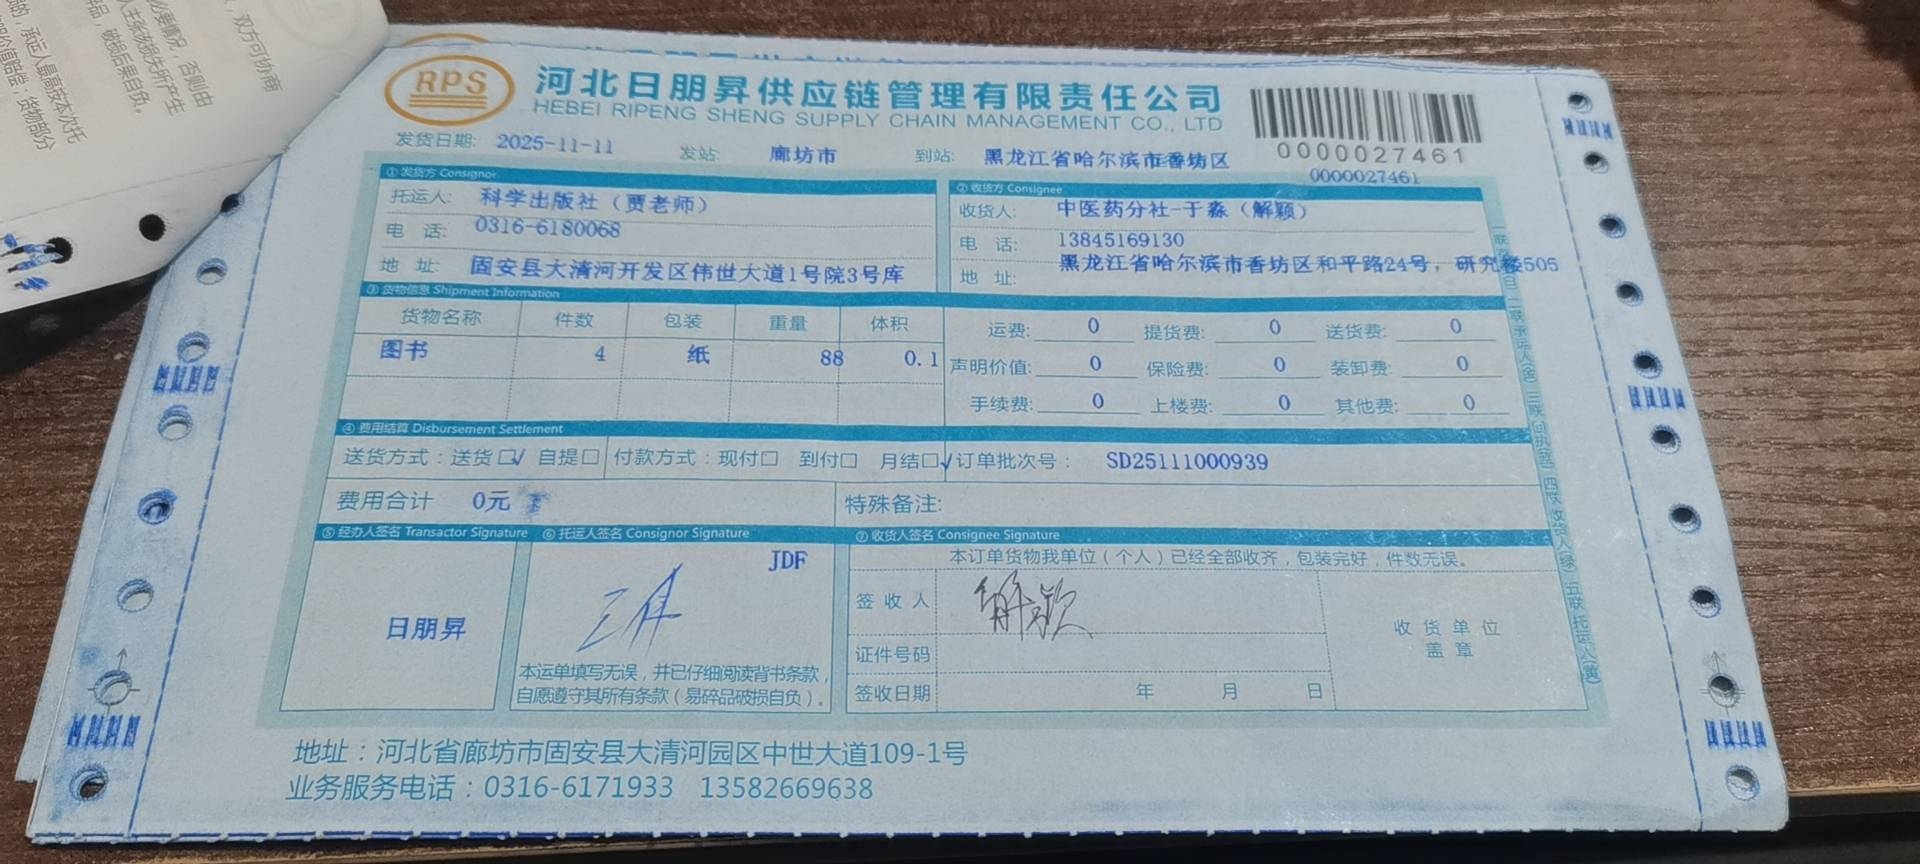 RPS
河北日朋昇供应链管理有限责任公司
HEBEI RIPENG SHENG SUPPLY CHAIN MANAGEMENT CO., LTD
0000027461
发货日期: 2025-11-11 发站: 廊坊市 到站: 黑龙江省哈尔滨市香坊区
0000027461
①发货方 Consignor
②收货方 Consignee
托运人: 科学出版社（贾老师）
收货人: 中医药分社-于淼（解颖）
电 话: 0316-6180068
电 话: 13845169130
地 址: 固安县大清河开发区伟世大道1号院3号库
地 址: 黑龙江省哈尔滨市香坊区和平路24号，研究楼505
③货物信息 Shipment Information
货物名称 件数 包装 重量 体积
图书 4 纸 88 0.1
运费: 0 提货费: 0 送货费: 0
声明价值: 0 保险费: 0 装卸费: 0
手续费: 0 上楼费: 0 其他费: 0
④费用结算 Disbursement Settlement
送货方式：送货□√ 自提□ 付款方式：现付□ 到付□ 月结□√ 订单批次号： SD25111000939
费用合计 0元 特殊备注:
⑤经办人签名 Transactor Signature ⑥托运人签名 Consignor Signature ⑦收货人签名 Consignee Signature
JDF
本订单货物我单位（个人）已经全部收齐，包装完好，件数无误。
日朋昇
签收人
证件号码
签收日期 年 月 日
收货单位
盖章
本运单填写无误，并已仔细阅读背书条款，
自愿遵守其所有条款（易碎品破损自负）。
地址：河北省廊坊市固安县大清河园区中世大道109-1号
业务服务电话：0316-6171933 13582669638